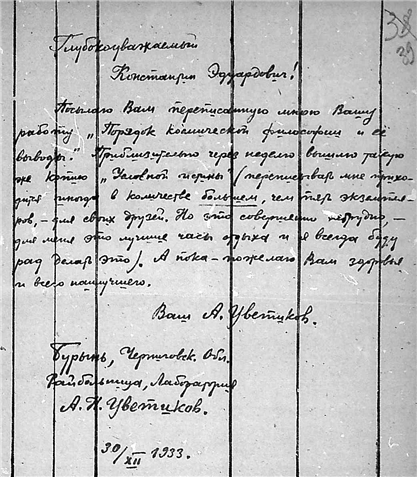 38
39
Глубокоуважаемый
Константин Эдуардович!
Посылаю Вам переписанную мною Вашу
работу „Порядок космической философии и её
выводы." Приблизительно через неделю вышлю такую
же копию „Условной истины" (переписывать мне прихо-
дится иногда в количестве большем, чем пять экземпля-
ров, – для своих друзей. Но это совершенно нетрудно, –
для меня это лучшие часы отдыха и я всегда буду
рад делать это). А пока – пожелаю Вам здоровья
и всего наилучшего.
Ваш А. Цветиков.
Бурынь, Черниговск. Обл.
Райбольница, Лаборатория
А. Н. Цветиков.
30/XII 1933.